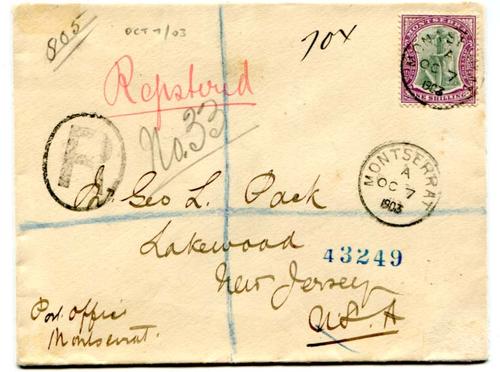 805
OCT 7/03
70x
MONTSERRAT
ONE SHILLING
MONTSERRAT
A
OC 7
1903
Registered
No. 33
R
MONTSERRAT
A
OC 7
1903
Mr. Geo L. Pack
Lakewood
43249
New Jersey
U.S.A
Post Office
Montserrat.